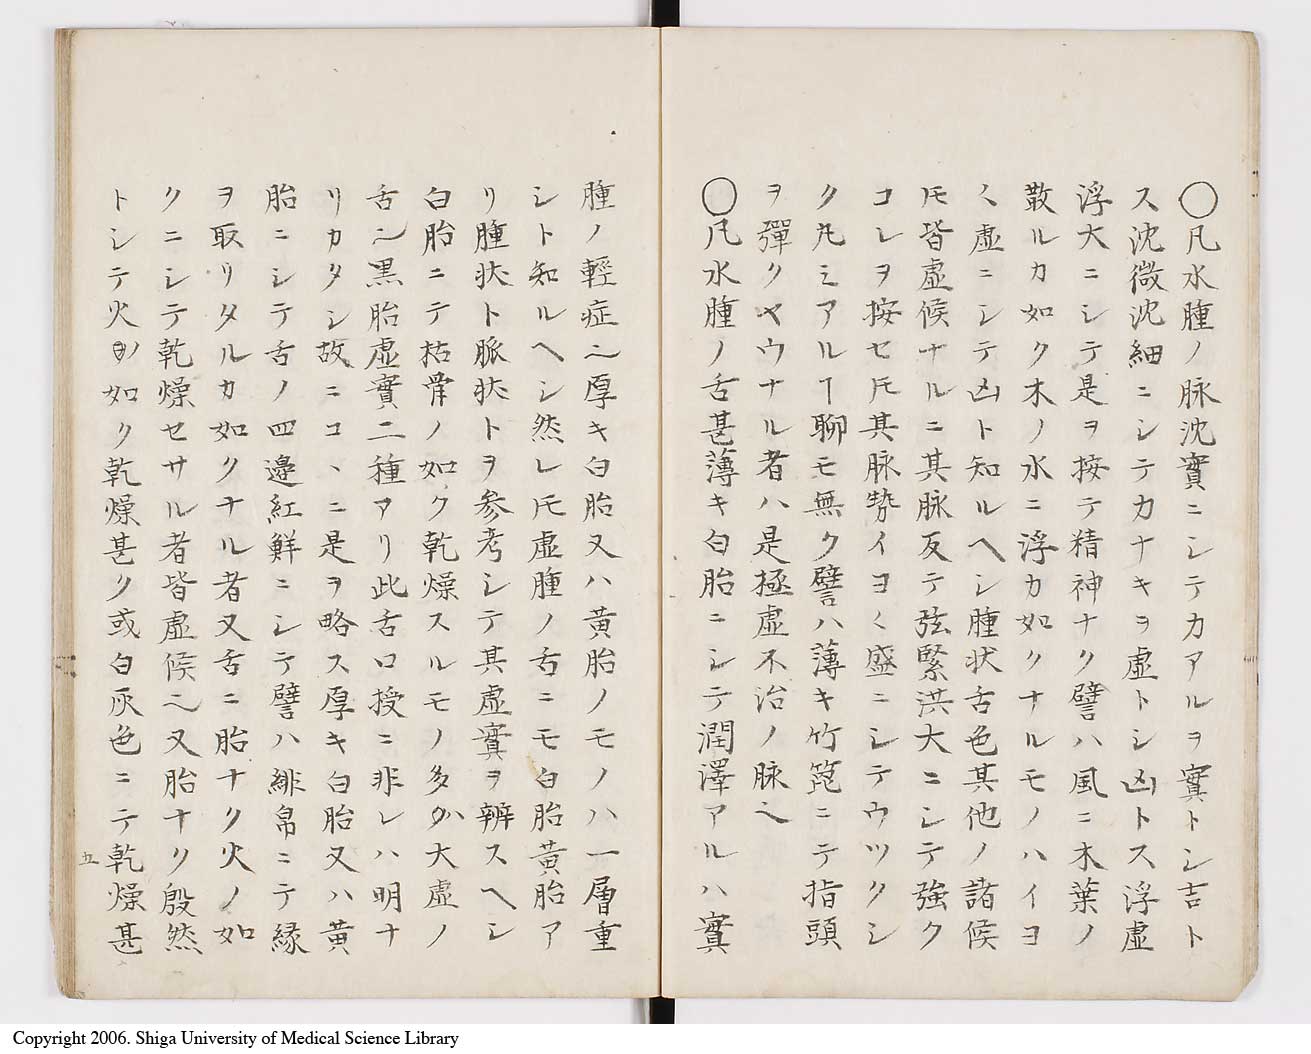 〇凡水腫ノ脉沈實ニシテカアルヲ實トシ吉ト
ス沈微沈細ニシテカナキヲ虚トシ凶トス浮虚
浮大ニシテ是ヲ按テ精神ナク譬ハ風ニ木葉ノ
散ルカ如ク木ノ水ニ浮カ如クナルモノハイヨ
〱虚ニシテ凶ト知ルヘシ腫状舌色其他ノ諸候
𪜈皆虚候ナルニ其脉反テ弦緊洪大ニシテ強ク
コレヲ按セ𪜈其脉勢イヨ〱盛ニシテウツクシ
ク凢ミアルヿ聊モ無ク譬ハ薄キ竹篦ニテ指頭
ヲ彈クヤウナル者ハ是極虚不治ノ脉ヘ
〇凡水腫ノ舌甚薄キ白胎ニシテ潤澤アルハ實
腫ノ輕症ヘ厚キ白胎又ハ黄胎ノモノハ一層重
シト知ルヘシ然レ𪜈虚腫ノ舌ニモ白胎黄胎ア
リ腫状ト脈状トヲ参考シテ其虚實ヲ辨スヘシ
白胎ニテ枯骨ノ如ク乾燥スルモノ多分大虚ノ
舌ヘ黒胎虚實二種アリ此舌口授ニ非レハ明ナ
リカタシ故ニコヽニ是ヲ略ス厚キ白胎又ハ黄
胎ニシテ舌ノ四邊紅鮮ニシテ譬ハ緋帛ニテ縁
ヲ取リタルカ如クナル者又舌ニ胎ナク火ノ如
クニシテ乾燥セサル者皆虚候ヘ又胎ナク殷然
トシテ火ノ如ク乾燥甚ク或白灰色ニテ乾燥甚
五
Copyright 2006. Shiga University of Medical Science Library